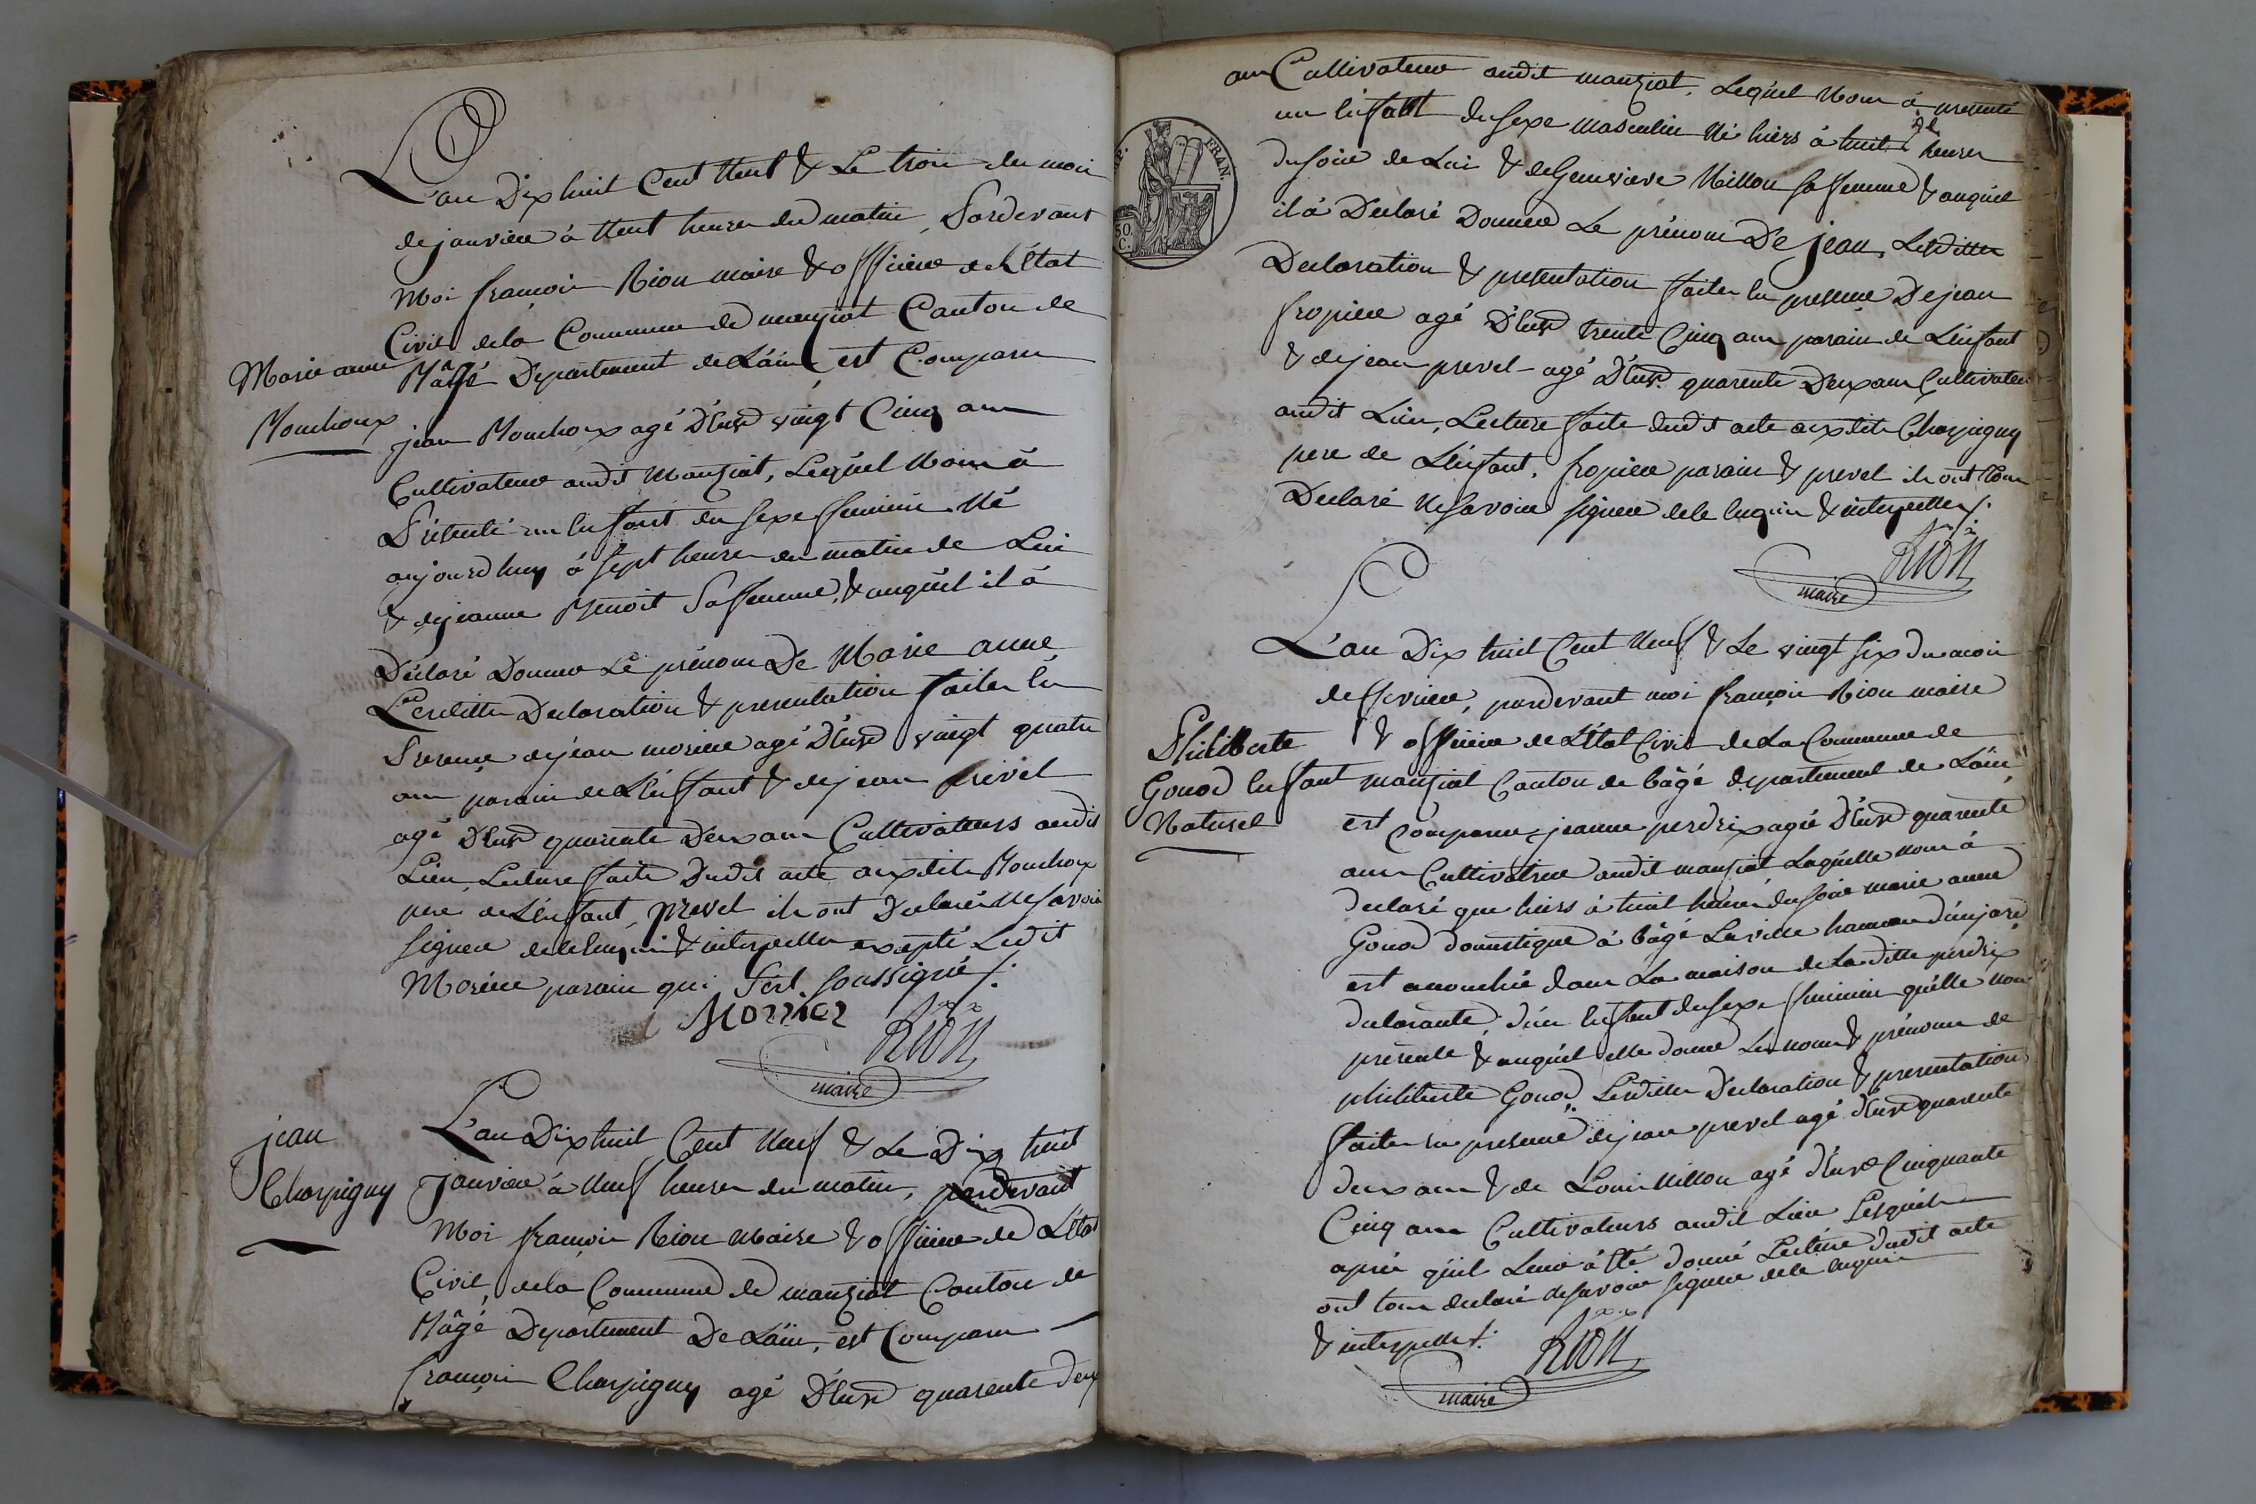 L'an Dix huit Cent Neuf & Le trois du mois
de janvier à Neuf heures du matin, Pardevant
Moi françois Rion maire & officier de L'état
Civil de la Commune de manziat Canton de
Marie anne
Bâgé Departement de L'ain, est Comparu
Mouchoux
jean Mouchoux agé D'Env. vingt Cinq ans
Cultivateur audit Manziat, Lequel Nous à
Présenté un Enfant du sexe feminin Né
aujourd'huy à sept heures du matin de Lui
& de jeanne Benoit Sa femme, & auquel il à
Déclaré Donner Le prénom De Marie anne
Lesdittes Declaration & presentation faites En
Presence de jean morier agé D'Env. vingt quatre
ans parain de L'enfant & de jean prevel
agé D'Env. quarente Deux ans Cultivateurs audit
Lieu, Lecture faite Dudit acte auxdits Mouchoux
pere de L'enfant, prevel ils ont Declaré Ne savoir
signer de ce Enquis & interpellés excepté Ledit
Morier parain qui s'est soussigné ./.
Morrier
RION
maire
jean
Charpigny
L'an Dix huit Cent Neuf & Le Dix huit
Janvier à Neuf heures du matin, pardevant
Moi françois Rion Maire & officier de L'état
Civil, de la Commune de manziat Canton de
Bâgé Departement De L'ain, est Comparu
françois Charpigny agé D'Env. quarente deux
ans Cultivateur audit manziat, Lequel Nous à presenté
un Enfant du sexe masculin Né hiers à huit heures
du soir de Lui & de Genevieve Nillon sa femme & auquel
il à Declaré Donner Le prénom De jean, Lesdittes
Declaration & presentation faites En presence De jean
fropier agé D'Env. trente Cinq ans parain de L'enfant
& de jean prevel agé D'Env. quarente Deux ans Cultivateurs
audit Lieu, Lecture faite dudit acte auxdits Charpigny
pere de L'enfant, fropier parain & prevel ils ont tous
Declaré Ne savoir signer de ce Enquis & interpellés ./.
RION
maire
REP. FRAN.
50.
C.
L'an Dix huit Cent Neuf & Le vingt six du mois
de fevrier, pardevant moi françois Rion maire
Philiberte
& officier de L'état Civil de La Commune de
Gonod Enfant
manziat Canton de bâgé departement de L'ain
Naturel
est comparue jeanne perdrix agée D'Env. quarente
ans Cultivatrice audit manziat Laquelle nous à
declaré que hiers à huit heures du soir marie anne
Gonod domestique à bâgé La ville hameau
est accouchée dans La maison de Laditte perdrix
declarante, d'un Enfant du sexe feminin qu'elle nous
présente & auquel elle donne Les noms & prénoms de
philiberte Gonod Lesdittes Declaration & presentation
faites en presence de jean prevel agé d'Env. quarente
deux ans & de Louis Nillon agé d'Env. Cinquante
Cinq ans Cultivateurs audit Lieu Lesquels
après qu'il Leur à été donné Lecture dudit acte
ont tous declaré ne savoir signer de ce enquis
& interpellés ./.
RION
maire